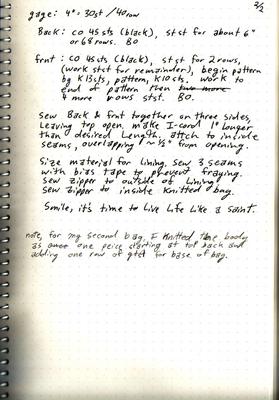 2/2
gage: 4" = 30st / 40row
Back: CO 45sts (black), st st for about 6"
or 68 rows. BO
frnt: CO 45sts (black), st st for 2 rows,
(work st st for remainder), begin pattern
by K13sts, pattern, K10sts. work to
end of pattern then two more
4 more rows stst. BO.
Sew Back & frnt together on three sides,
Leaving top open. make I-cord 1" longer
than desired Length. attch to inside
seams, overlapping 1~1½" from opening.
Size material for Lining, sew 3 seams
with bias tape to prevent fraying.
Sew zipper to outside of Lining
Sew zipper to inside knitted bag.
Smile, it's time to Live Life Like a saint.
note, for my second bag, I knitted the body
as one peice starting at top back and
adding one row of gtst for base of bag.